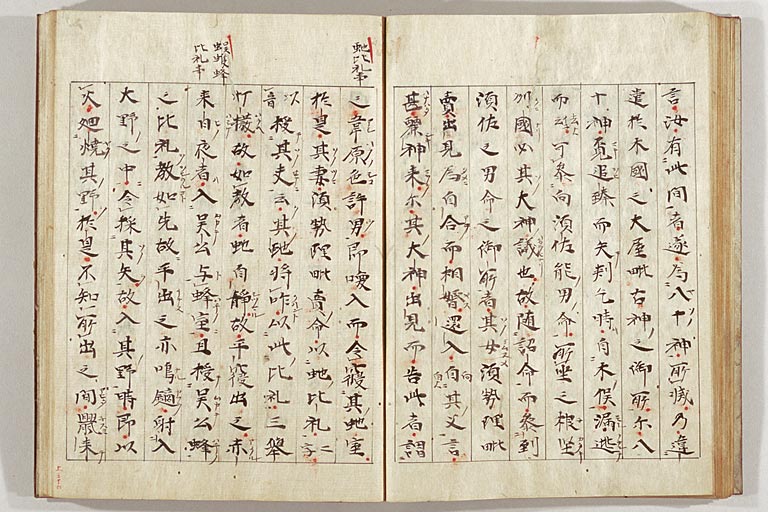 言汝有此間者遂為八十神所滅乃違
遣於木國之大屋毗古神之御所尒八
十神覓追臻而矢刺乞時自木俣漏逃
而云可參向須佐能男命所坐之根堅
州國必其大神議也故随詔命而參到
須佐之男命之御所者其女須勢理毗
賣出見為目合而相婚還入白其父言
甚麗神来尒其大神出見而告此者謂
蛇比礼事
之葦原色許男即喚入而令寢其蛇室
於是其妻須勢理毗賣命以蛇比礼二字
以音授其夫云其蛇将咋以此比礼三舉
打撥故如教者蛇自静故平寢出之亦
蜈蚣蜂
比礼事
来日夜者入吴公与蜂室且授吴公蜂
之比礼教如先故平出之亦鳴鏑射入
大野之中令採其矢故入其野時即以
火廻燒其野於是不知所出之間鼠来